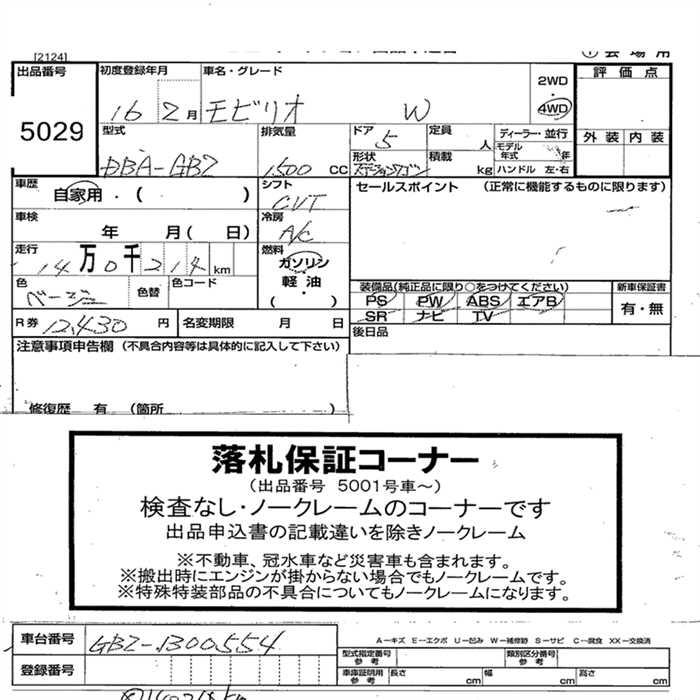 [2124]
① 会 場 用
出品番号
5029
初度登録年月
16 2月
車名・グレード
モビリオ W
2WD
・
4WD
評価点
外装 内装
型式
DBA-GB2
排気量
1,500 CC
ドア
5
形状
ステーションワゴン
定員
人
積載
kg
ディーラー・並行
モデル年式 年
ハンドル 左・右
車歴
自家用・( )
シフト
CVT
セールスポイント (正常に機能するものに限ります)
車検
年 月( 日)
冷房
A/C
走行
14万0千214km
燃料
ガソリン
軽・油
( ・ )
色
ベージュ
色替
色コード
装備品(純正品に限り○をつけてください)
PS PW ABS エアB
SR ナビ TV
新車保証書
有・無
R券 12,430円
名変期限 月 日
後日品
注意事項申告欄 (不具合内容等は具体的に記入して下さい)
修復歴 有 (箇所 )
落札保証コーナー
(出品番号 5001号車~)
検査なし・ノークレームのコーナーです
出品申込書の記載違いを除きノークレーム
※不動車、冠水車など災害車も含まれます。
※搬出時にエンジンが掛からない場合でもノークレームです。
※特殊特装部品の不具合についてもノークレームになります。
車台番号
GB2-1300554
登録番号
A-キズ E-エクボ U-凹み W-補修跡 S-サビ C-腐食 XX-交換済
型式指定番号
参考
類別区分番号
参考
車庫証明用
参考
長さ cm 幅 cm 高さ cm